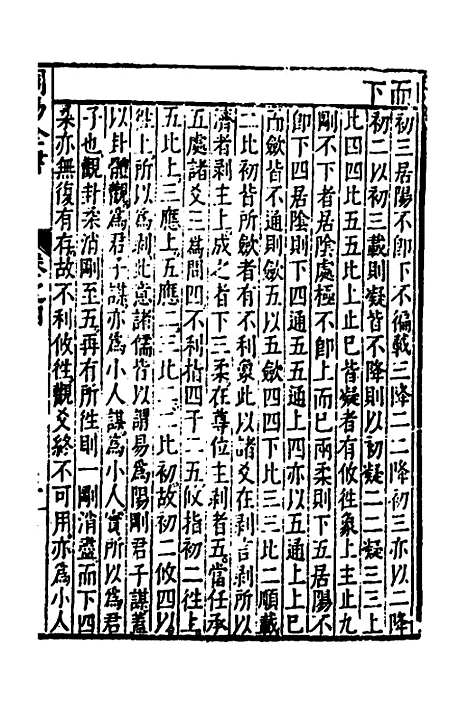 而初三居陽不卽下不徧載三降二二降初三亦以二降
下
初二以初三載則疑皆不降則以初疑二二疑三三上
比四四比五五比上止巳皆疑者有攸徃象上主止九
剛不下者居陰處極不卽上而巳兩柔則下五居陽不
卽下四居陰則下四通五五通上四亦以五通上上巳
而斂皆不通則斂五以五斂四四下比三三比二順載
二比初皆所斂者有不利象此以諸爻在剥言剥所以
濟者剥主上成之者下三柔在尊位主剥者五當任承
五處諸爻三爲問四不利指四千二五攸指初二徃上
五比上三應上五應二三比二二比初故初二攸四以
徃上所以爲剥此意諸儒皆以謂易爲陽剛君子謀蓋
以卦體觀爲君子謀亦爲小人謀爲小人實所以爲君
子也觀卦柔消剛至五再有所徃則一剛消盡而下四
柔亦無復有存故不利攸徃觀爻終不可用亦爲小人
卷之四